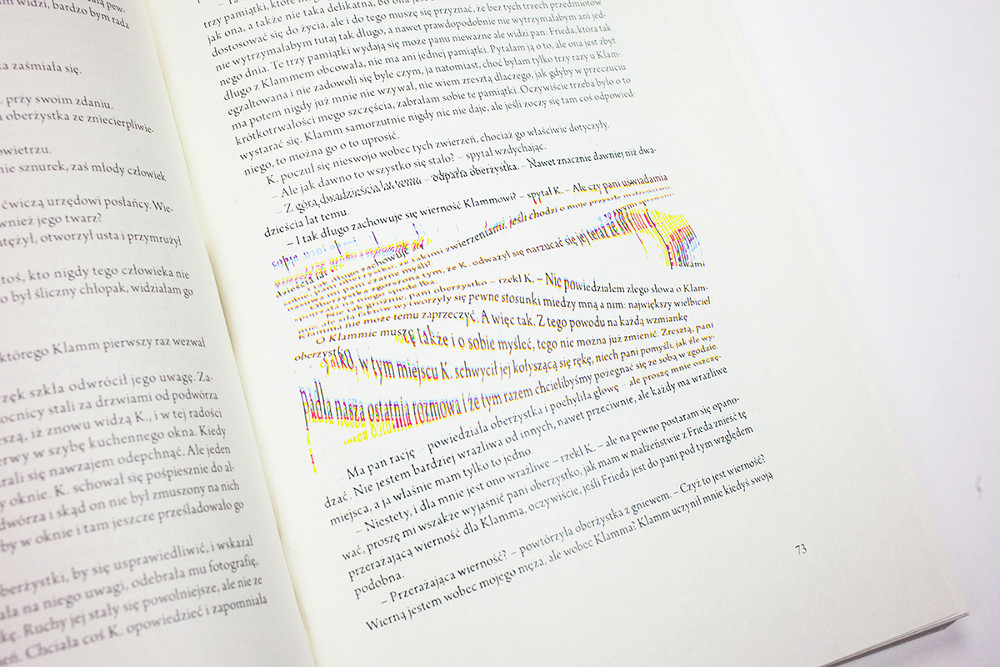 widzi, bardzo bym rada
zaśmiała się.
przy swoim zdaniu.
oberżystka ze zniecierpliwie-
powietrzu.
nie sznurek, zaś młody człowiek
ćwiczą urzędowi posłańcy. Wie-
również jego twarz?
otworzył usta i przymrużył
ktoś, kto nigdy tego człowieka nie
był śliczny chłopak, widziałam go
którego Klamm pierwszy raz wezwał
szkła odwrócił jego uwagę. Za-
stali za drzwiami od podwórza
iż znowu widzą K., i w tej radości
w szybę kuchennego okna. Kiedy
się nawzajem odepchnąć. Ale jeden
oknie. K. schował się pośpiesznie do al-
i skąd on nie był zmuszony na nich
by w oknie i tam jeszcze prześladowało go
oberżystki, by się usprawiedliwić, i wskazał
na niego uwagi, odebrała mu fotografię,
Ruchy jej stały się powolniejsze, ale nie ze
Chciała coś K. opowiedzieć i zapomniała
trzy pamiątki, które
jak ona, a także nie taka delikatna,
dostosować się do życia, ale i do tego muszę się przyznać, że bez tych trzech przedmiotów
nie wytrzymałabym tutaj tak długo, a nawet prawdopodobnie nie wytrzymałabym ani jed-
nego dnia. Te trzy pamiątki wydają się może panu nieważne ale widzi pan: Frieda, która tak
długo z Klammem obcowała, nie ma ani jednej pamiątki. Pytałam ją o to, ale ona jest zbyt
egzaltowana i nie zadowoli się byle czym, ja natomiast, choć byłam tylko trzy razy u Klam-
ma potem nigdy już mnie nie wzywał, nie wiem zresztą dlaczego, jak gdyby w przeczuciu
krótkotrwałości mego szczęścia, zabrałam sobie te pamiątki. Oczywiście trzeba było o to
wystarać się. Klamm samorzutnie nigdy nic nie daje, ale jeśli zoczy się tam coś odpowied-
niego, to można go o to uprosić.
K. poczuł się nieswojo wobec tych zwierzeń, chociaż go właściwie dotyczyły.
– Ale jak dawno to wszystko się stało? – spytał wzdychając.
– Z górą dwadzieścia lat temu – odparła oberżystka. – Nawet znacznie dawniej niż dwa-
dzieścia lat temu.
– I tak długo zachowuje się wierność Klammowi? – spytał K. – Ale czy pani uświadamia
zwierzeniami, jeśli chodzi o moje przyszłe małżeństwo
że K. odważył się narzucać się jej teraz ze swymi
pani oberżystko – rzekł K. – Nie powiedziałem złego słowa o Klam-
wytworzyły się pewne stosunki między mną a nim: największy wielbiciel
Klamma nie może temu zaprzeczyć. A więc tak. Z tego powodu na każdą wzmiankę
O Klammie muszę także i o sobie myśleć, tego nie można już zmienić. Zresztą, pani
oberżystko, w tym miejscu K. schwycił jej kołyszącą się rękę, niech pani pomyśli, jak źle wy-
padła nasza ostatnia rozmowa i że tym razem chcielibyśmy pożegnać się ze sobą w zgodzie.
– Ma pan rację – powiedziała oberżystka i pochyliła głowę – ale proszę mnie oszczę-
dzać. Nie jestem bardziej wrażliwa od innych, nawet przeciwnie, ale każdy ma wrażliwe
miejsca, a ja właśnie mam tylko to jedno.
– Niestety, i dla mnie jest ono wrażliwe – rzekł K. – ale na pewno postaram się opano-
wać, proszę mi wszakże wyjaśnić pani oberżystko, jak mam w małżeństwie z Friedą znieść tę
przerażającą wierność dla Klamma, oczywiście, jeśli Frieda jest do pani pod tym względem
podobna.
– Przerażająca wierność? – powtórzyła oberżystka z gniewem. – Czyż to jest wierność?
Wierną jestem wobec mojego męża, ale wobec Klamma? Klamm uczynił mnie kiedyś swoją
73